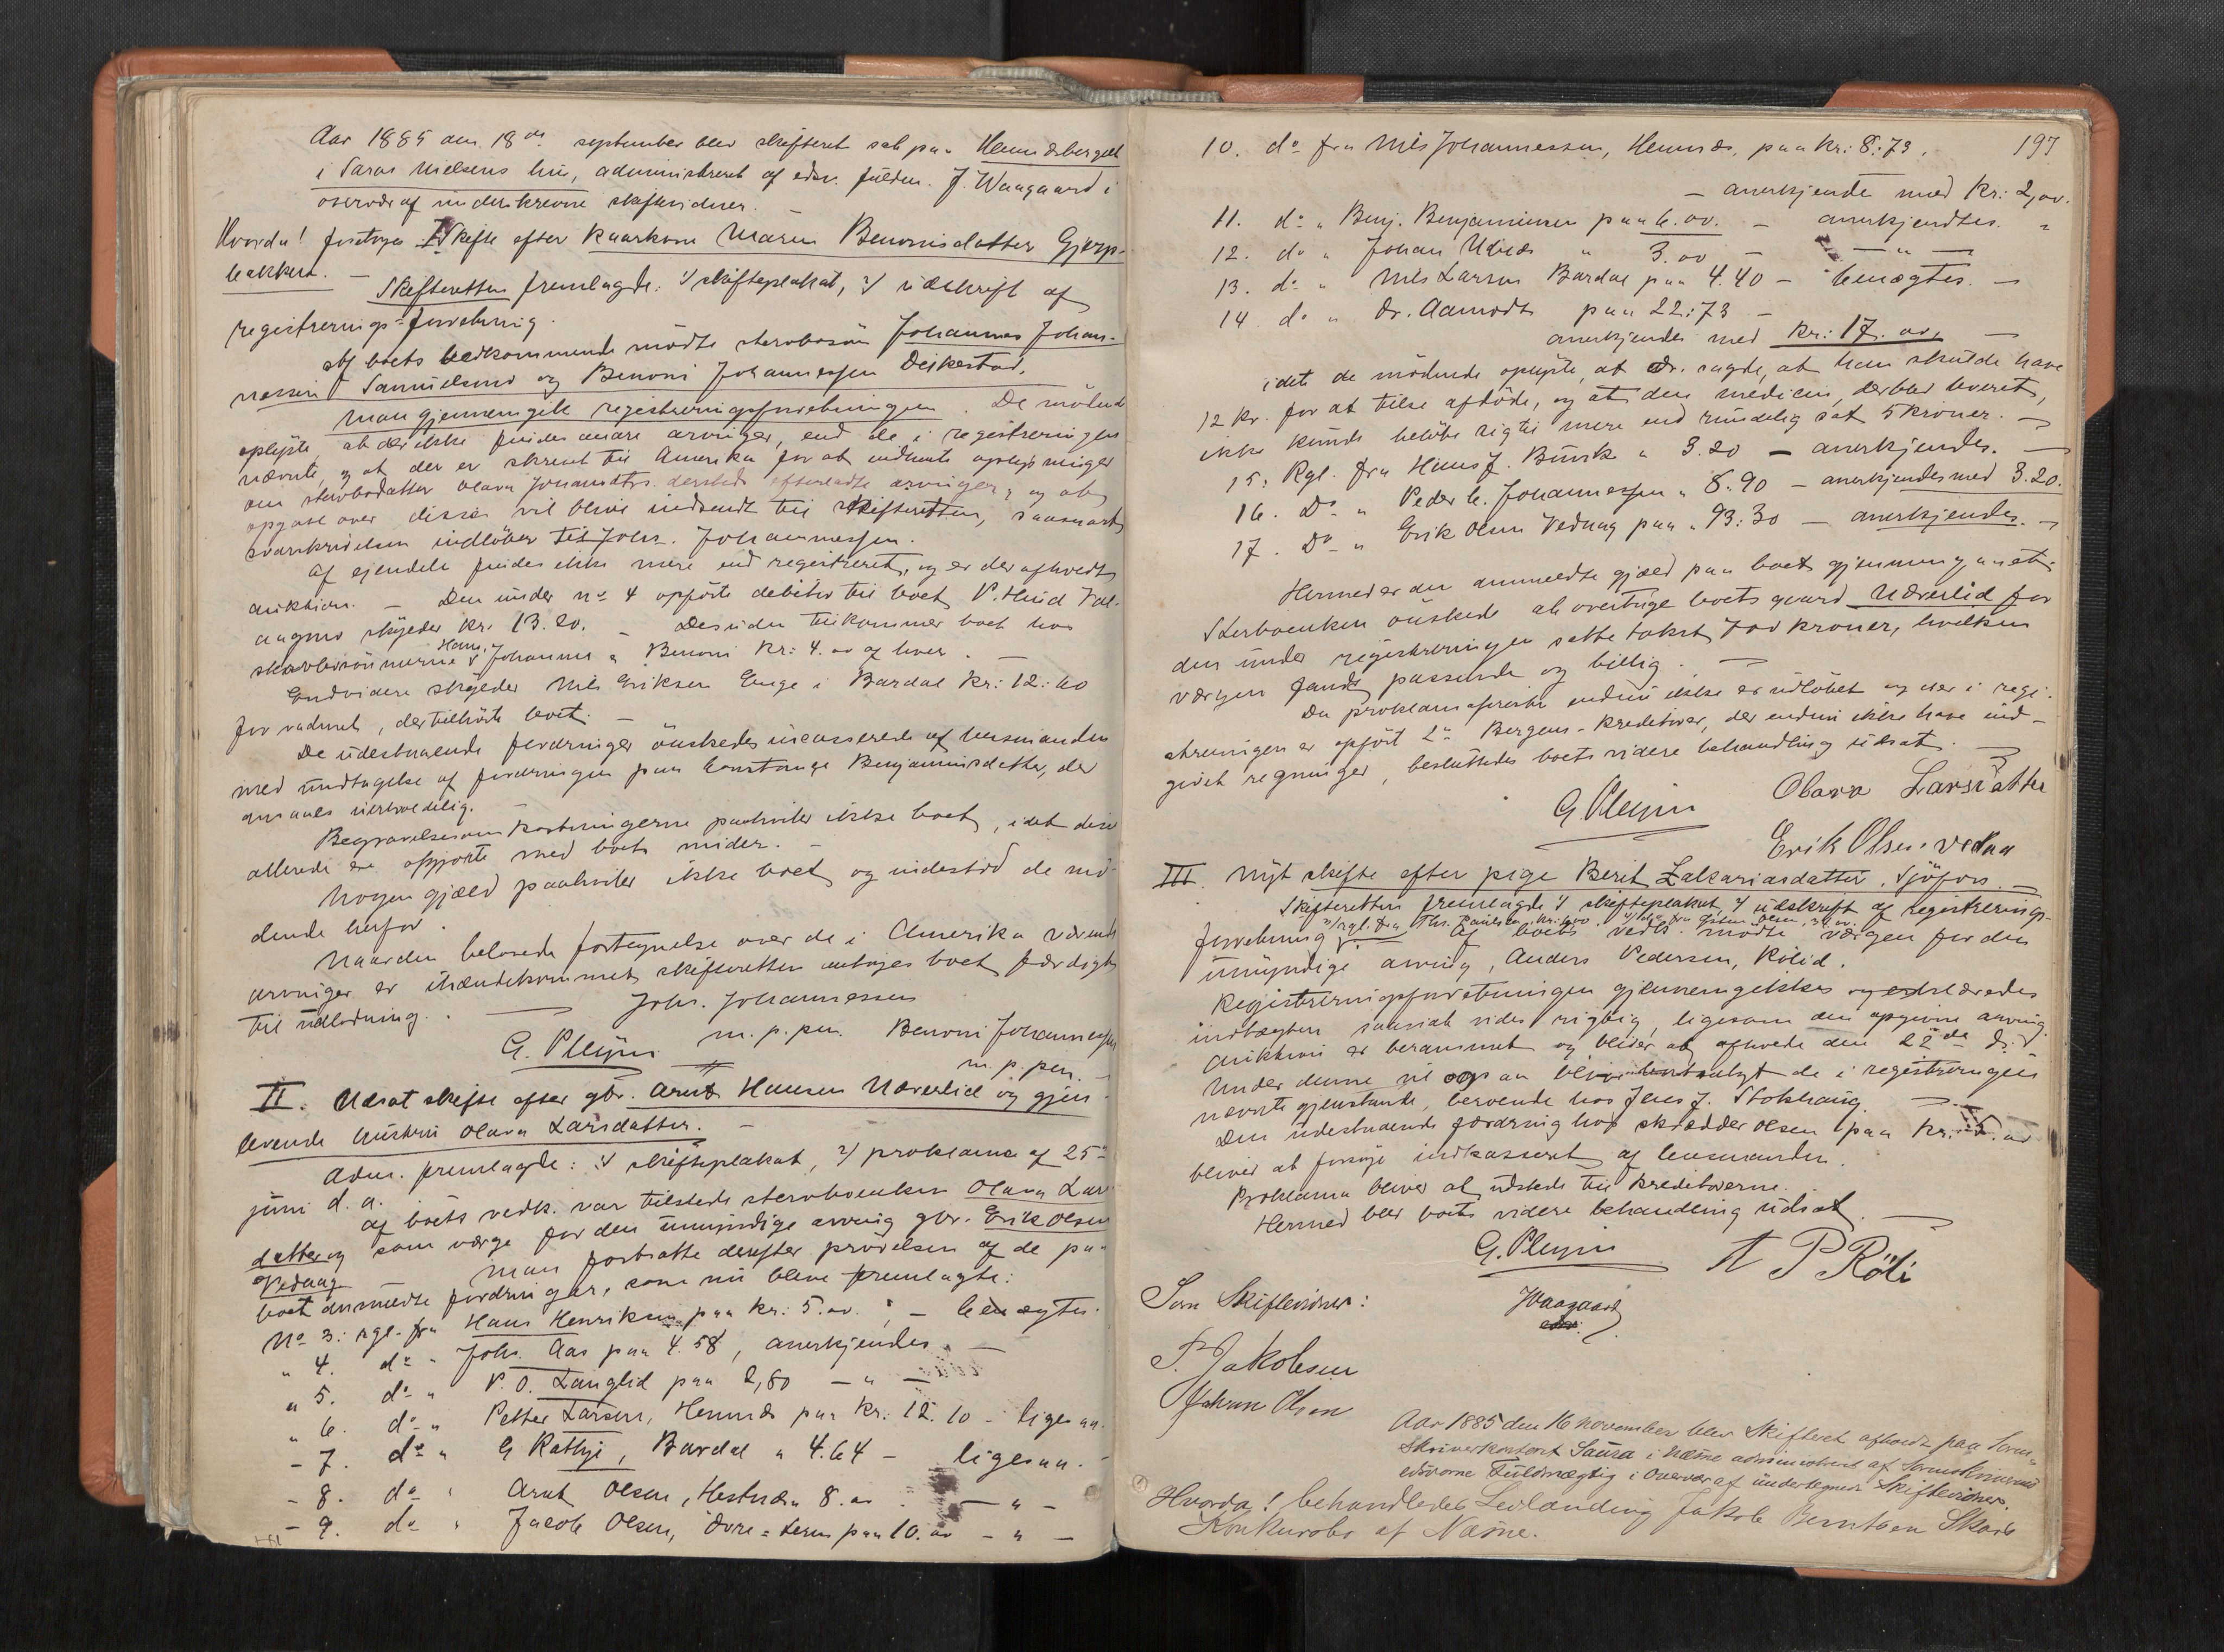 Aar 1885 den 18de september blev skifteret sat paa Hemnesberget
i Saras Nielsens hus, administreret af edsv. fuldm. J. Waagaard i
overvær af underskrevne skiftevidner. —
Hvorda! foretoges I Skifte efter Kaarkone Maren Benonisdatter Gjerp-
bakken. — Skifteretten fremlagde: 1/ skifteplakat, 2/ udskrift af
registrerings-forretning.
Af boets vedkommende mödte stervbosön Johannes Johan-
nessen Samuelsmo og Benoni Johannessen Deikestad.
Man gjennemgik registreringsforretningen. De mödende
oplyste, at der ikke findes andre arvinger, end de i registreringen
nævnte, og at der er skrevet til Amerika for at indhente oplysninger
om stervbodatter Olava Johansdtrs. dersteds efterladte arvinger, og at
opgave over disse vil blive indsendt til skifteretten, saasnart
svarskrivelsen indlöber til Johs. Johannessen.
Af ejendele findes ikke mere end registreret, og er der afholdt
auktion. — Den under no 4 opförte debitor til boet, P. Hind Val-
aagmo skylder Kr. 13.20. — Desuden tilkommer boet hos
stervbosönnerne Hans, Johannes & Benoni Kr: 4.00 af hver. —
Endvidere skylder Nils Eriksen Enge i Bardal Kr: 12:60
for vadmel, der tilhörte boet. —
De udestaaende fordringer önskedes incasserede af lensmanden
med undtagelse af fordringen paa Constance Benjaminsdatter, der
ansaaes uerholdelig.
Begravelsesomkostningerne paahviler ikke boet, idet disse
allerede ere opgjorte med boets midler. —
Nogen gjæld paahviler ikke boet og indestod de mö-
dende herfor.
Naar den belovede fortegnelse over de i Amerika værende
arvinger er ihændekommet skifteretten antages boet færdigt
til udlodning. — Johs. Johannessen
G. Pleym m. p. pen. Benoni Johannessen
m. p. pen. —
II. Udsat skifte efter gbr. Arnt Hansen Næverlid og gjen-
levende hustru Olava Larsdatter. —
Adm. fremlagde: 1/ skifteplakat, 2/ proklama af 25de
juni d. a.
Af boets vedk. var tilstede stervboenken Olava Lars-
datter og som værge for den umyndige arving gbr. Erik Olsen
Vedaag Man fortsatte derefter prövelsen af de paa
boet anmeldte fordringer, som nu bleve fremlagte:
No 3: rgl. fra Hans Henriksen paa Kr: 5.00. ; — benægtes.
" 4. do " Johs. Aas paa 4.58, anerkjendes. —
" 5. do " P. O. Langlid paa 2,80 — " —
" 6. do " Petter Larsen, Hemnes paa Kr: 12.10 — ligesaa.
- 7. do " G Rathje, Bardal " 4.64 — ligesaa. -
- 8. do " Arnt Olsen, Hestnes " 8.00 . — " —
- 9. do " Jacob Olsen, Övre-Leren paa 10.00 — " —
10. do fra Nils Johannessen, Hemnes, paa Kr: 8:73. 197
— anerkjendte med Kr: 2,00.
11. do " Benj. Benjaminsen paa 6.00. — anerkjendtes. "
12. do " Johan " 3.00 — — " —
13. do " Nils Larsen Bardal paa 4.40 — benægtes. —
14 do " Dr. Aamodt paa 22:73 —
anerkjendes med Kr: 17.00, —
idet de mödende oplyste, at dr. sagde, at han skulde have
12 kr. for at tilse aflöde, og at den medicin, der blev leveret,
ikke kunde belöbe sig til mere end rundelig sat 5 kroner. —
15: Rgl. fra Hans J. Burk " 3.20 — anerkjendes. —
16. Do " Peder C. Johannessen " 8.90 — anerkjendes med 3.20.
17. Do " Erik Olsen Vedaag paa " 93:30 — anerkjendes. —
Hermed er den anmeldte gjæld paa boet gjennemgaaet.
Stervboenken önskede at overtage boets gaard Næverlid for
den under registreringen satte takst, 700 kroner, hvilken
værgen fandt passende og billig. —
Da proklamafristen endnu ikke er udlöbet og der i regi-
streringen er opfört 2de Bergens-kreditorer, der endnu ikke have ind-
givet regninger, besluttedes boets videre behandling udsat. —
G Pleym Olava Larsdatter
Erik Olsen Vedaa
III. Nyt skifte efter pige Berit Zakariasdatter, Sjöfors. —
Skifteretten fremlagde 1/ skifteplakat, 2/ udskrift af registrerings-
3/ rgl. fra Ths. Paulsen, kr: 6.00. 4/ do fra Østen Olsen
forretning. Af boets vedk. mödte værgen for den
umyndige arving, Anders Pedersen, Rölid.
Registreringsforretningen gjennemgikkes og erklæredes
indtægten saavidt vides rigtig, ligesom den opgivne arving.
Auktion er berammet og bliver at afholde den 22de ds. —
Under denne vil ogsaa blive bortsolgt de i registreringen
nævnte gjenstande, beroende hos Jens J. Stokhaug. —
Den udestaaende fordring hos skrædder Olsen paa Kr: 5.00
bliver at forsöge indkasseret af lensmanden.
Proklama bliver at udstede til kreditorerne.
Hermed blev boets videre behandling udsat. —
G. Pleym A P Röli
Som Skiftevidner: JWaagaard
P. Jakobsen
Johan Olsen
Aar 1885 den 16 november blev Skifteret afholdt paa Soren-
skriverkontoret Saura i Næsne administreret af Sorenskriverens
edsvorne Fuldmægtig i Overvær af undertegnede Skiftevidner.
Hvorda! behandledes Levlænding Jakob Berntsen Skars
Konkursbo af Næsne.